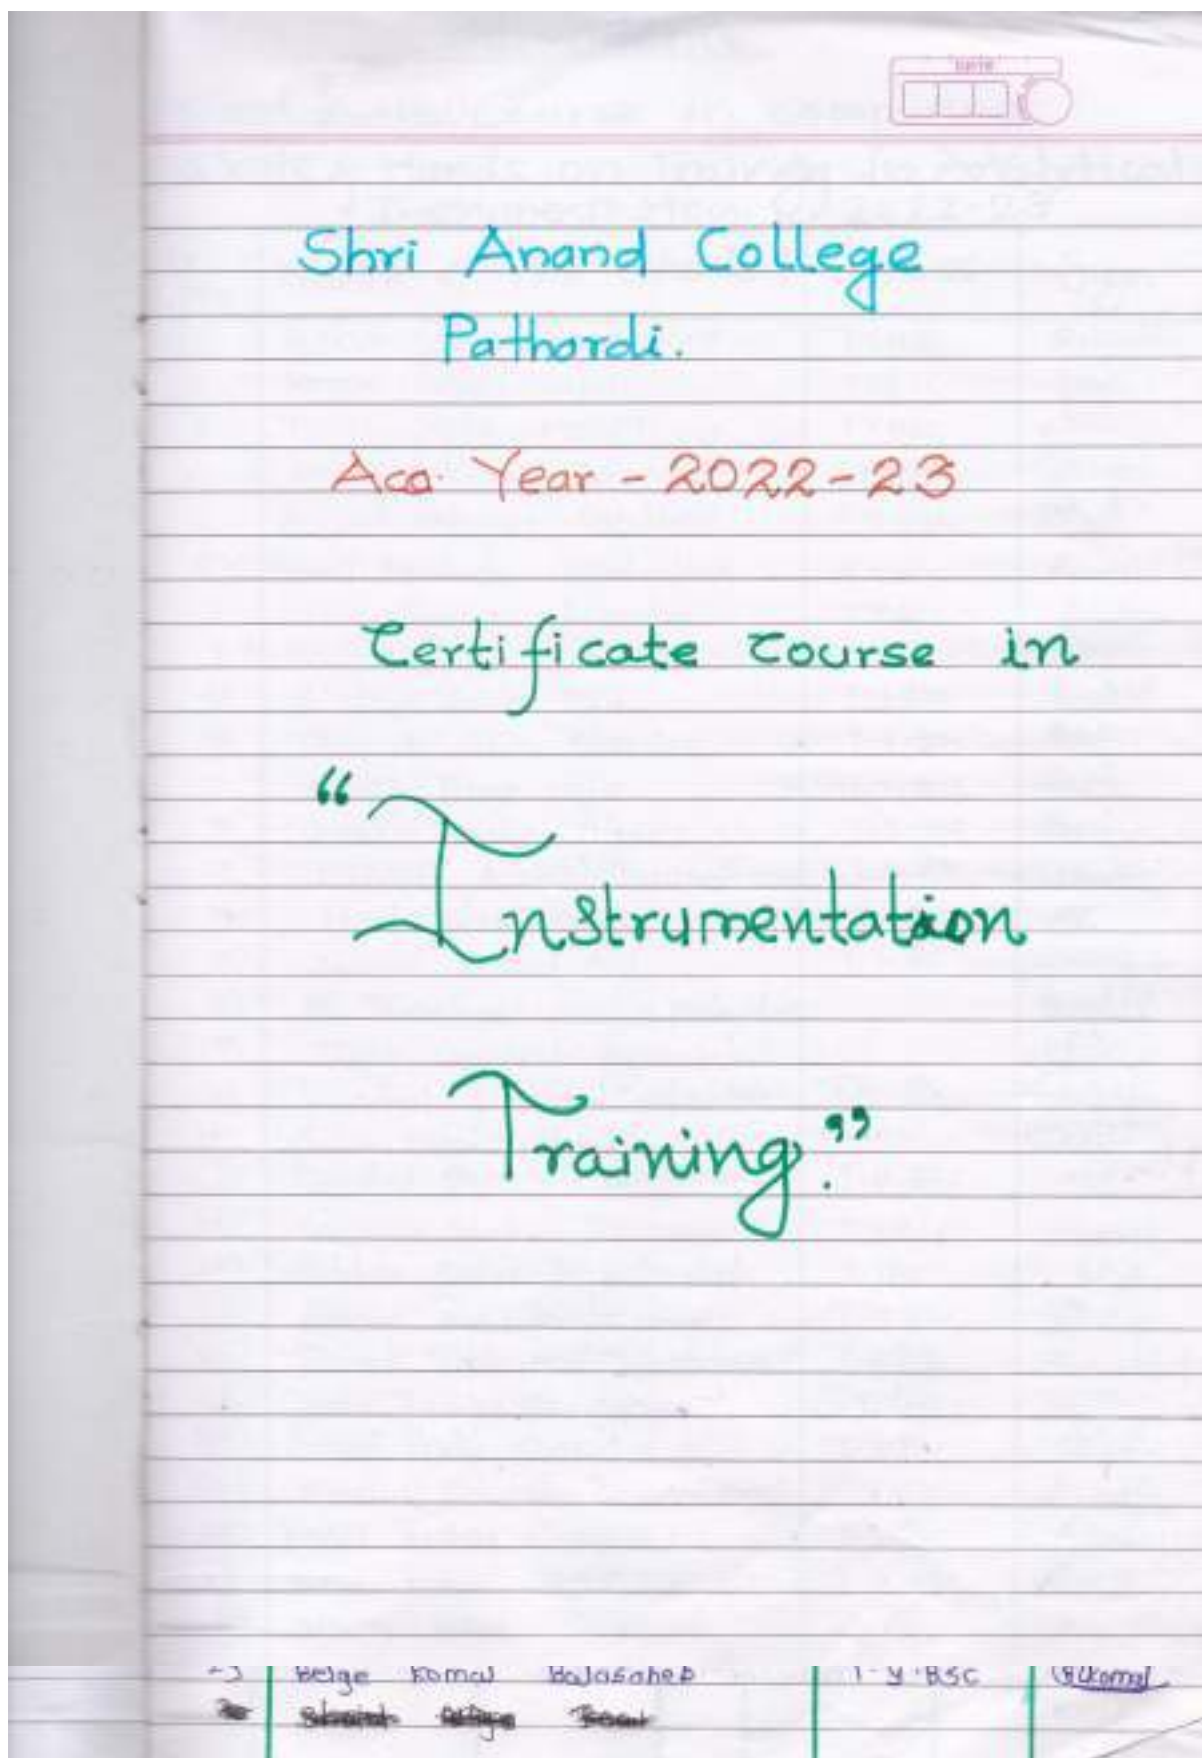 DATE
Shri Anand College
Pathardi.
Aca. Year - 2022-23
Certificate course in
“Instrumentation
Training.”
Belge Komal Balasaheb T.Y.BSC BKomal